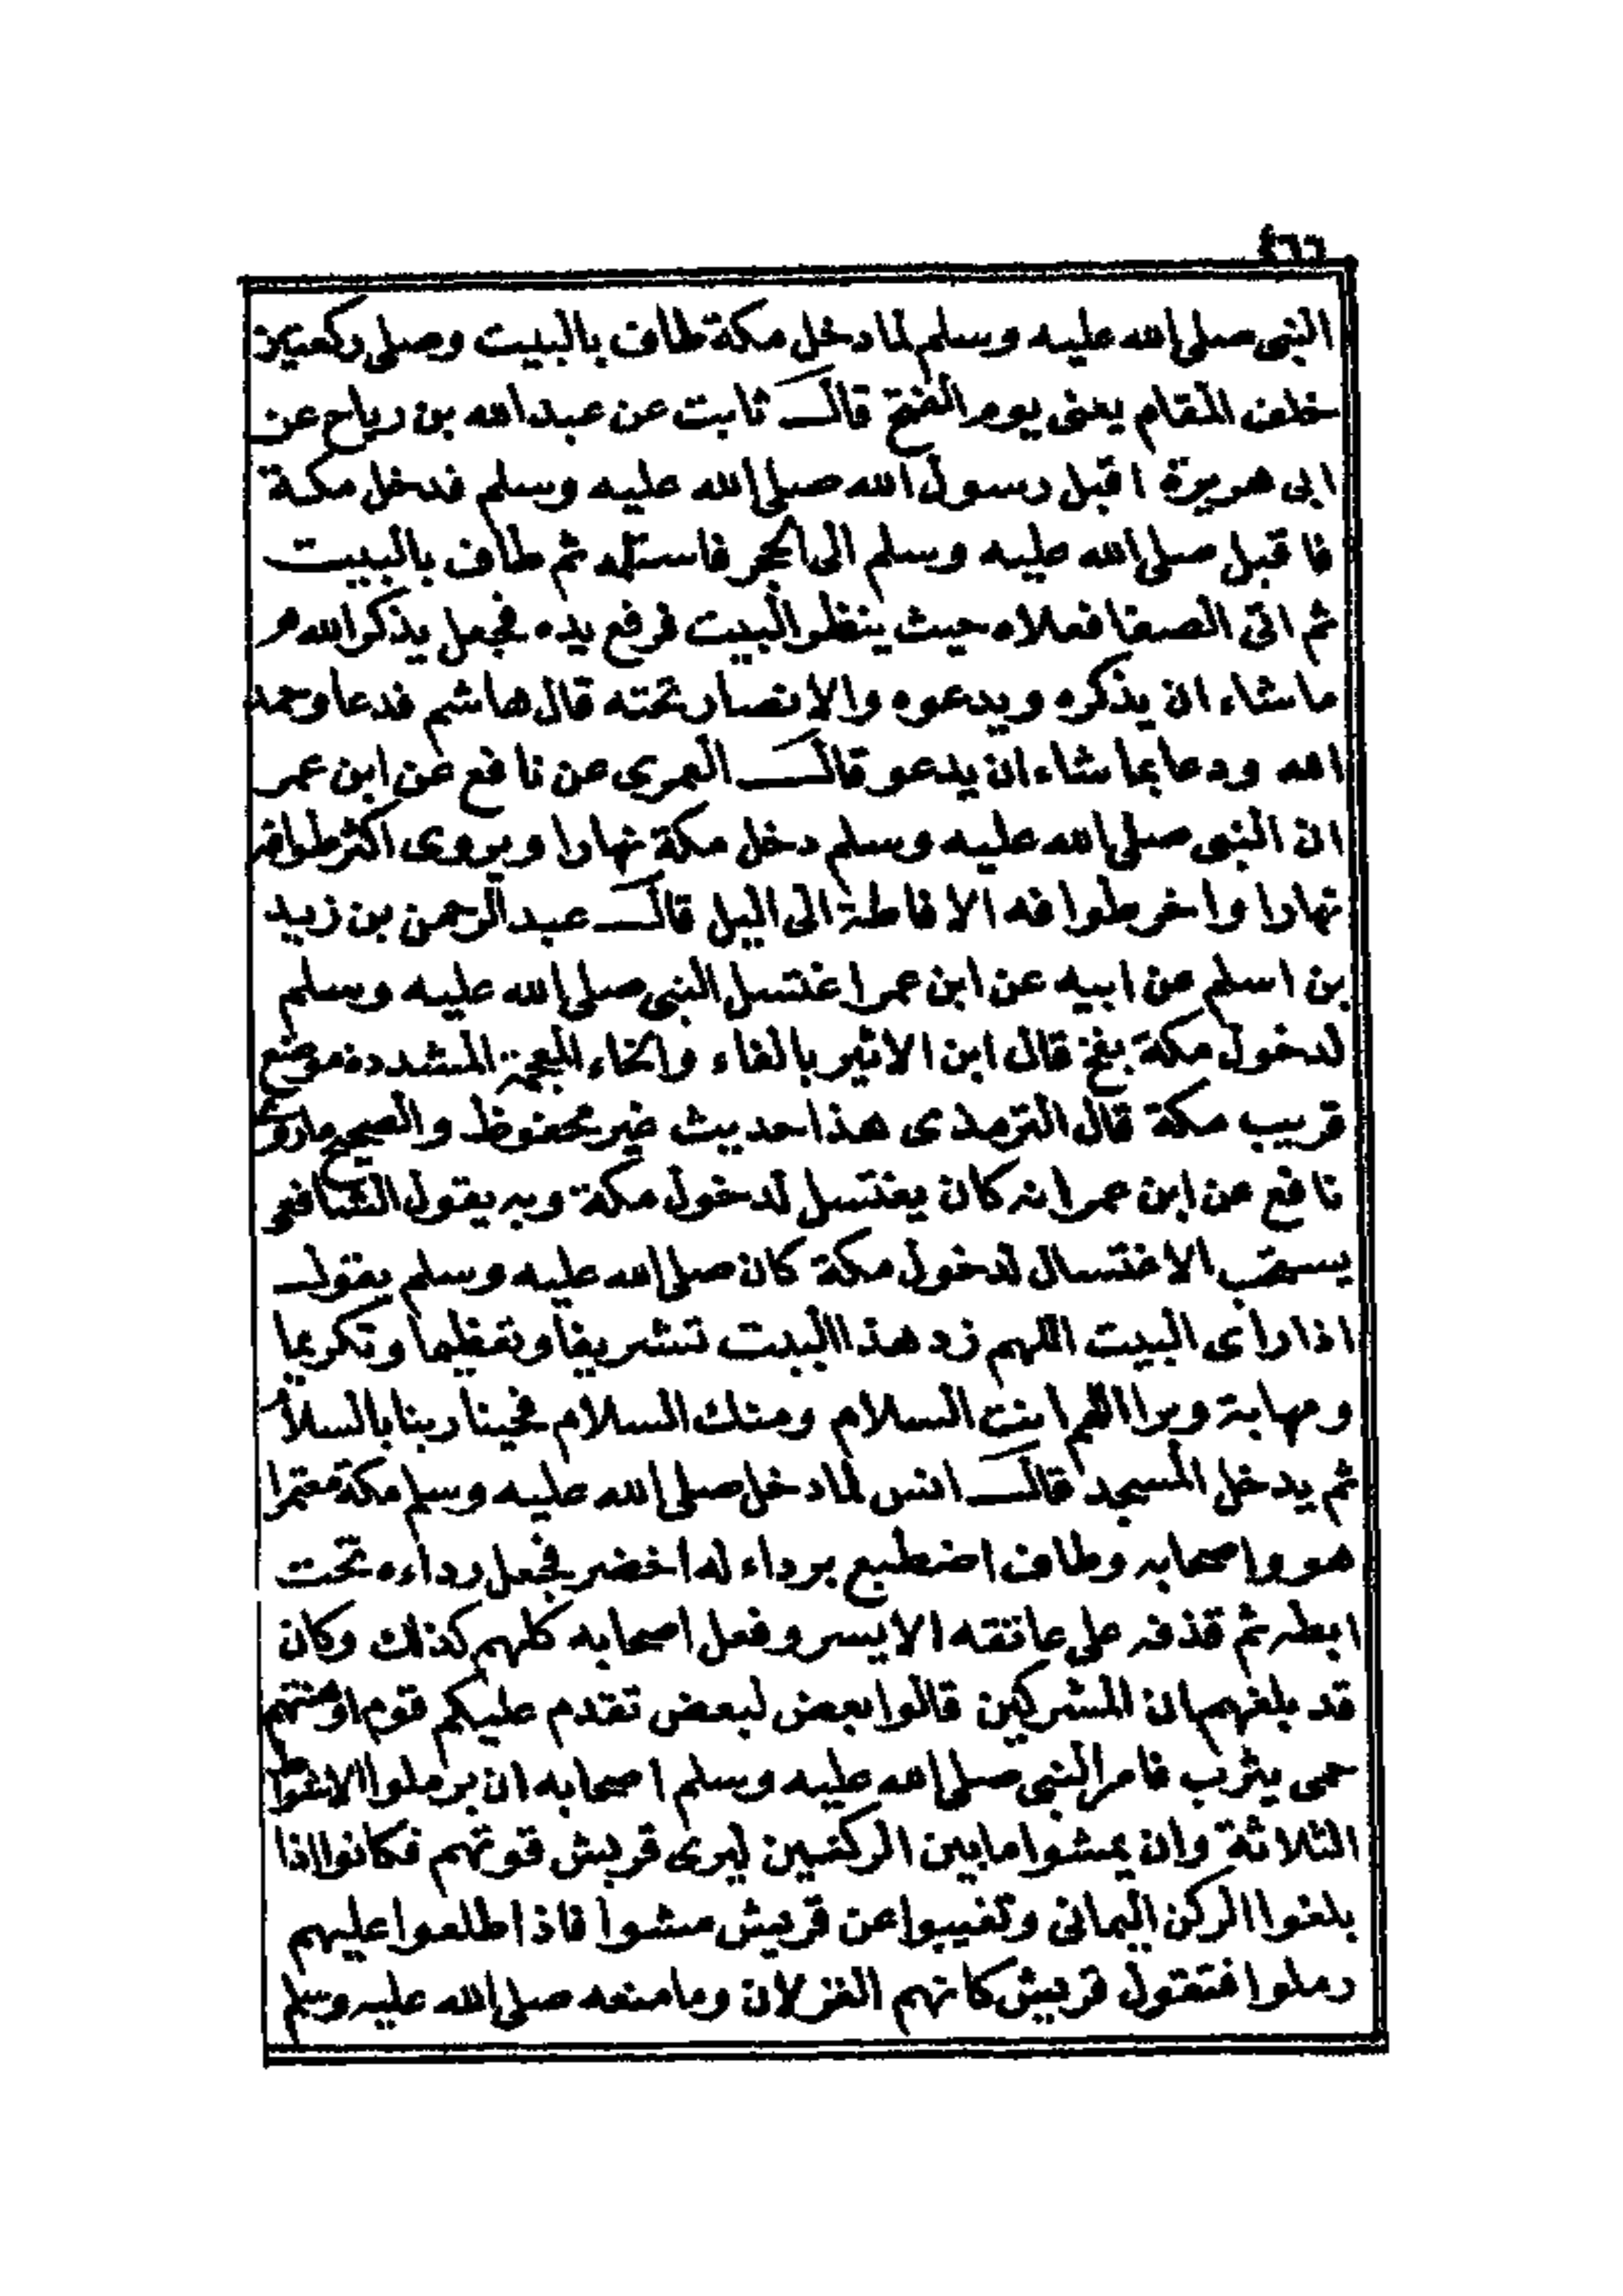 ٤٦٦
النبى صلى الله عليه وسلم لما دخل مكة طاف بالبيت وصلى ركعتين
خلف المقام يعنى يوم الفتح قال ثابت عن عبدالله بن رباح عن
ابى هريرة اقبل رسول الله صلى الله عليه وسلم فدخل مكة
فاقبل صلى الله عليه وسلم الى الحجر فاستلمه ثم طاف بالبيت
ثم اتى الصفا فعلاه حيث ينظر البيت فرفع يده فجعل يذكر الله
ما شاء ان يذكره ويدعوه والانصار تحته قال هاشم فدعا وحمد
الله ودعا بما شاء ان يدعو قال العمرى عن نافع عن ابن عمر
ان النبى صلى الله عليه وسلم دخل مكة نهارا ويروى اكثر طوافه
نهارا واخر طوافه الافاطة الى اليل قال عبد الرحمن بن زيد
بن اسلم عن ابيه عن ابن عمر اغتسل النبى صلى الله عليه وسلم
لدخول مكة بفخ قال ابن الاثير بالفاء والخاء المعجمة المشددة موضع
قريب مكة قال الترمذى هذا حديث غير محفوظ والصحيح ماروى
نافع عن ابن عمر انه كان يغتسل لدخول مكة وبه يقول الشافعى
يستحب الاغتسال لدخول مكة كان صلى الله عليه وسلم يقول
اذا راى البيت اللهم زد هذا البيت تشريفا وتعظيما وتكريما
ومهابة وبرا اللهم انت السلام ومنك السلام فحينا ربنا بالسلام
ثم يدخل المسجد قال انس لما دخل صلى الله عليه وسلم مكة معتمرا
هو واصحابه وطاف اضطبع برداء له اخضر فجعل رداءه تحت
ابطه ثم قذفه على عاتقه الايسر وفعل اصحابه كلهم كذلك وكان
قد بلغهم ان المشركين قالوا بعض لبعض تقدم عليكم قوم اوهنتهم
حمى يثرب فامر النبى صلى الله عليه وسلم اصحابه ان يرملوا الاشواط
الثلاثة وان يمشوا ما بين الركنين ليرى قريش قوتهم فكانوا اذا
بلغوا الركن اليمانى وتغيبوا عن قريش مشوا فاذا طلعوا عليهم
رملوا فتقول قريش كانهم الغزلان وما منعه صلى الله عليه وسلم